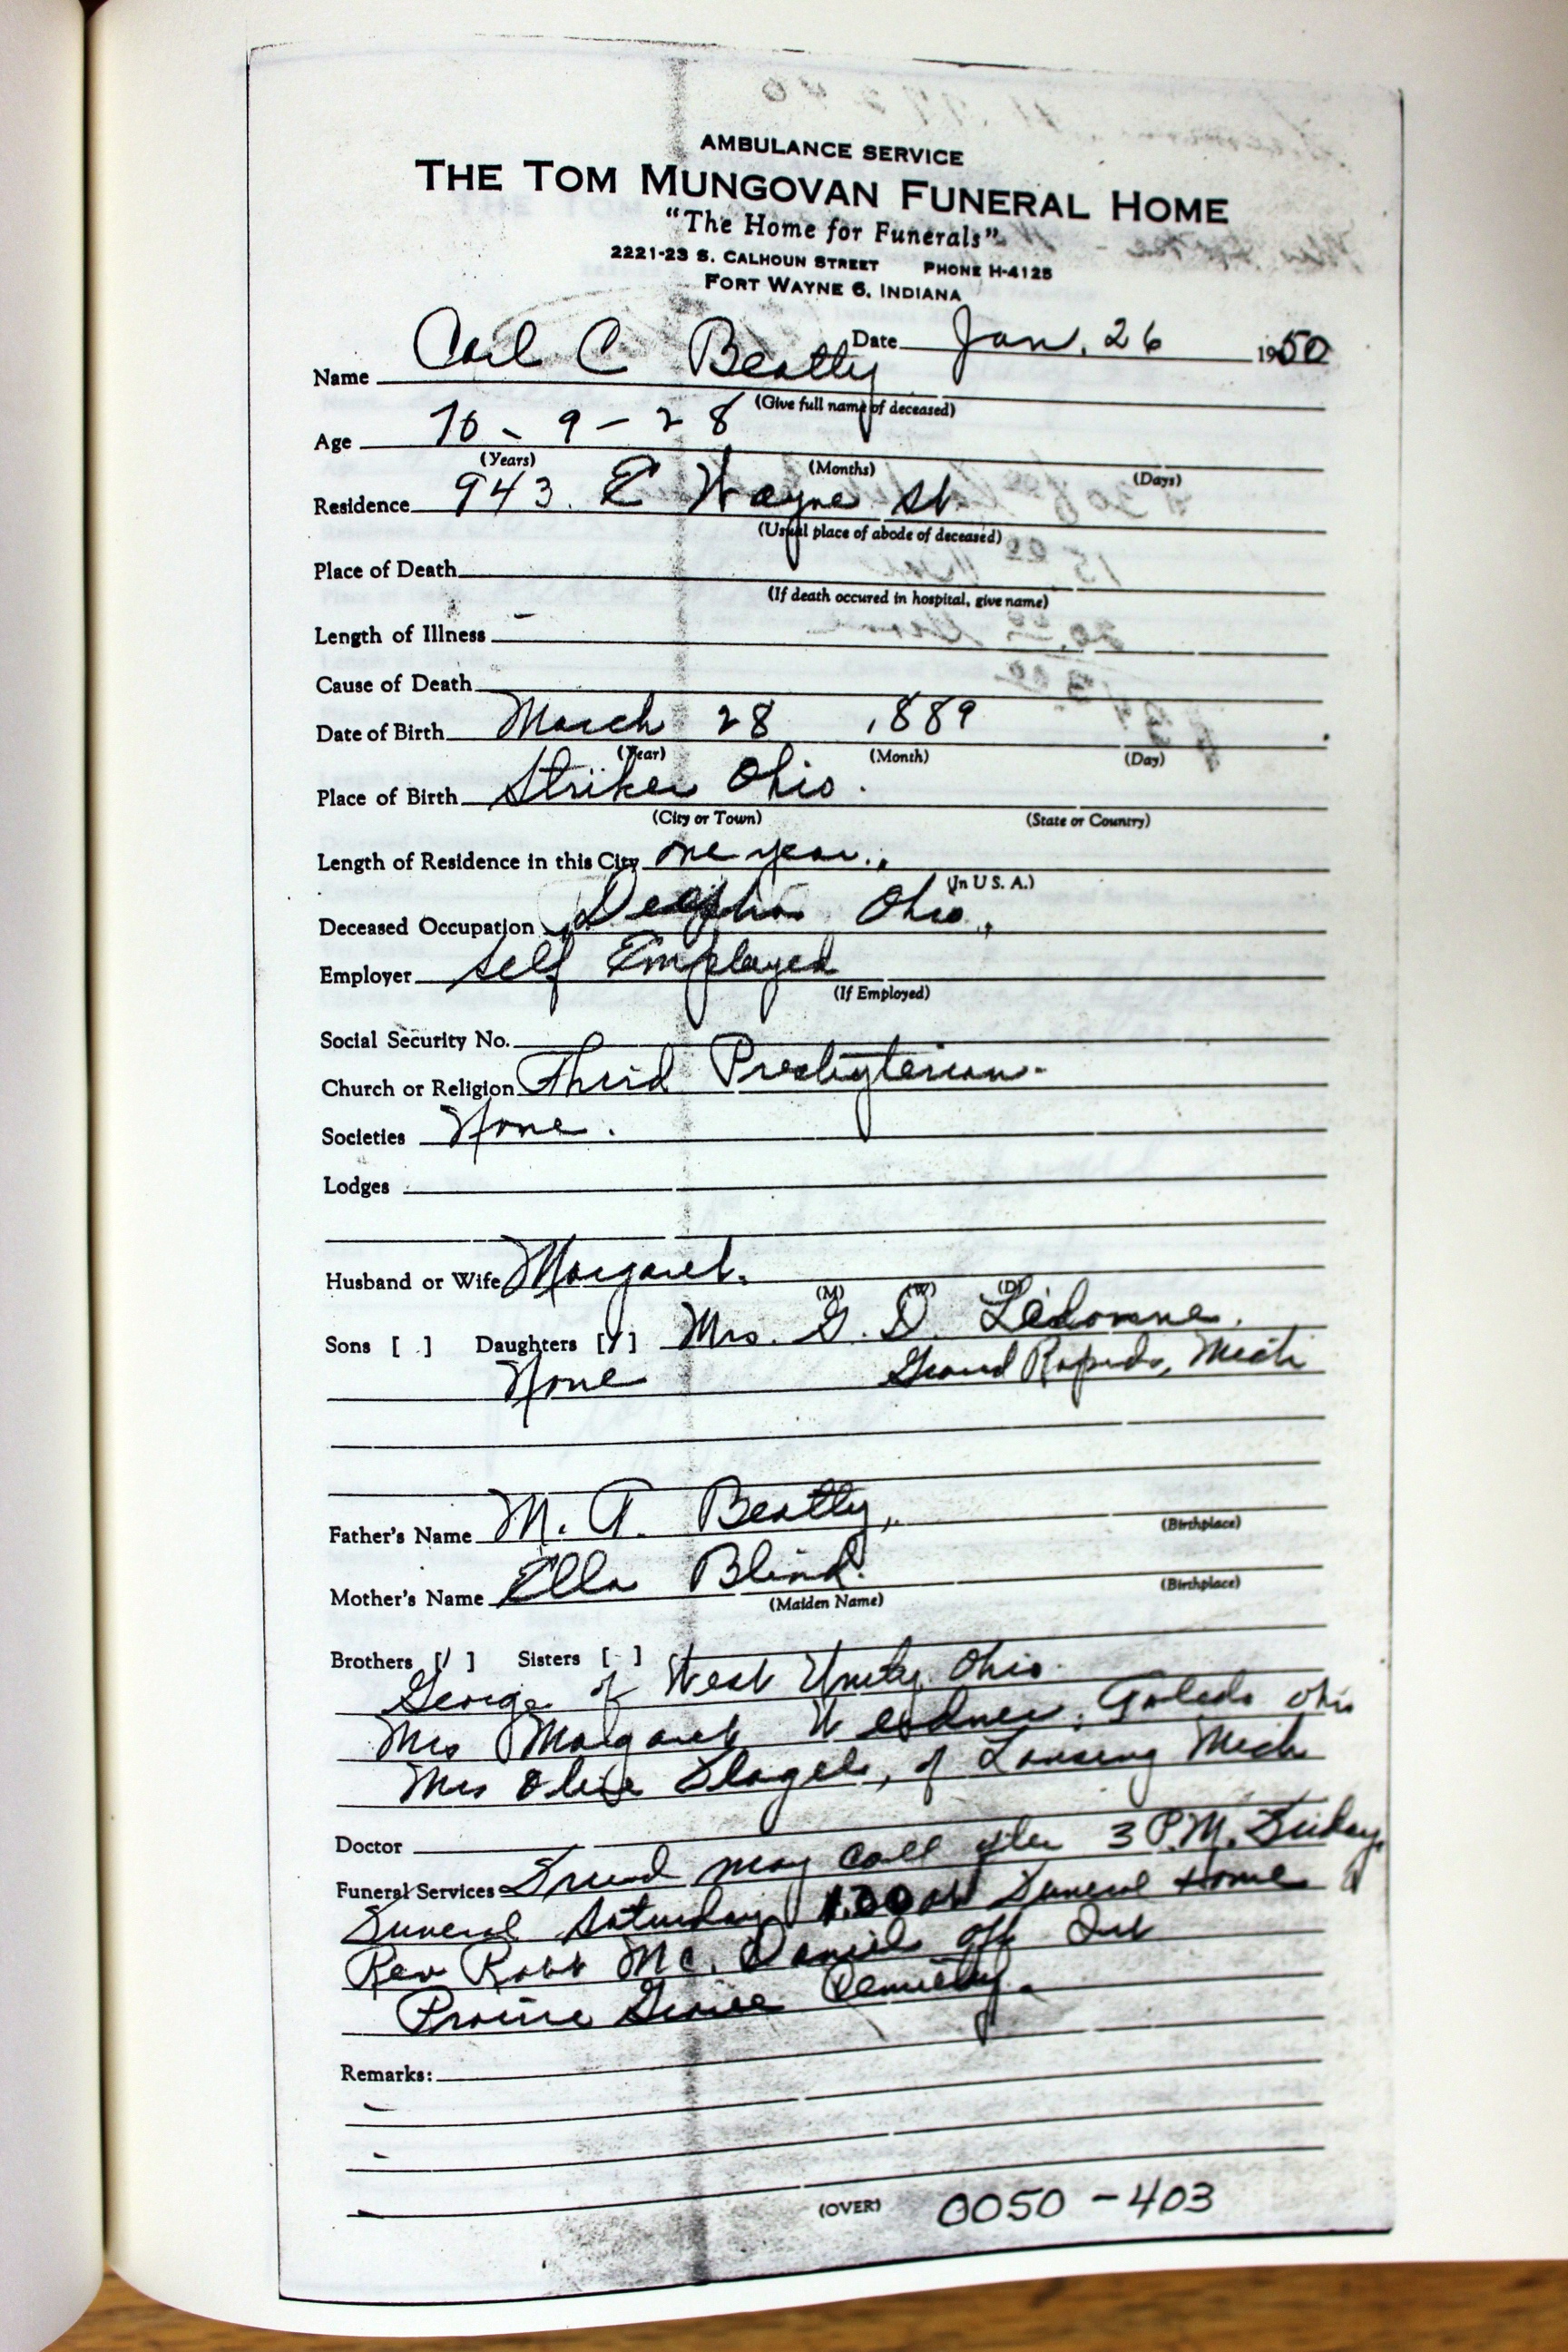 AMBULANCE SERVICE
THE TOM MUNGOVAN FUNERAL HOME
"The Home for Funerals"
2221-23 S. CALHOUN STREET PHONE H-4125
FORT WAYNE 6, INDIANA
Date Jan. 26 1950
Name Carl C Beatty
(Give full name of deceased)
Age 70 - 9 - 28
(Years) (Months) (Days)
Residence 943. E Wayne St.
(Usual place of abode of deceased)
Place of Death
(If death occured in hospital, give name)
Length of Illness
Cause of Death
Date of Birth March 28 1889
(Year) (Month) (Day)
Place of Birth Striker Ohio.
(City or Town) (State or Country)
Length of Residence in this City one year.
(In U S. A.)
Deceased Occupation Delphos Ohio.
Employer Self Employed
(If Employed)
Social Security No.
Church or Religion Third Presbyterian
Societies None.
Lodges
Husband or Wife Margaret.
(M) (W) (D)
Sons [ ] Daughters [/] Mrs. G. D. Ledonne.
None Grand Rapids, Mich
Father's Name M. A. Beatty,
(Birthplace)
Mother's Name Ella Blind.
(Maiden Name) (Birthplace)
Brothers [/] Sisters [ ]
George of West Unity Ohio.
Mrs Margaret Toledo Ohio
Mrs Olive of Lansing Mich
Doctor
Funeral Services Friend may call after 3 P.M. Friday.
Funeral Saturday 1.00 at Funeral Home
Rev Robt Mc. Daniel off Int
Prairie Grove Cemetery.
Remarks:
(OVER) 0050-403